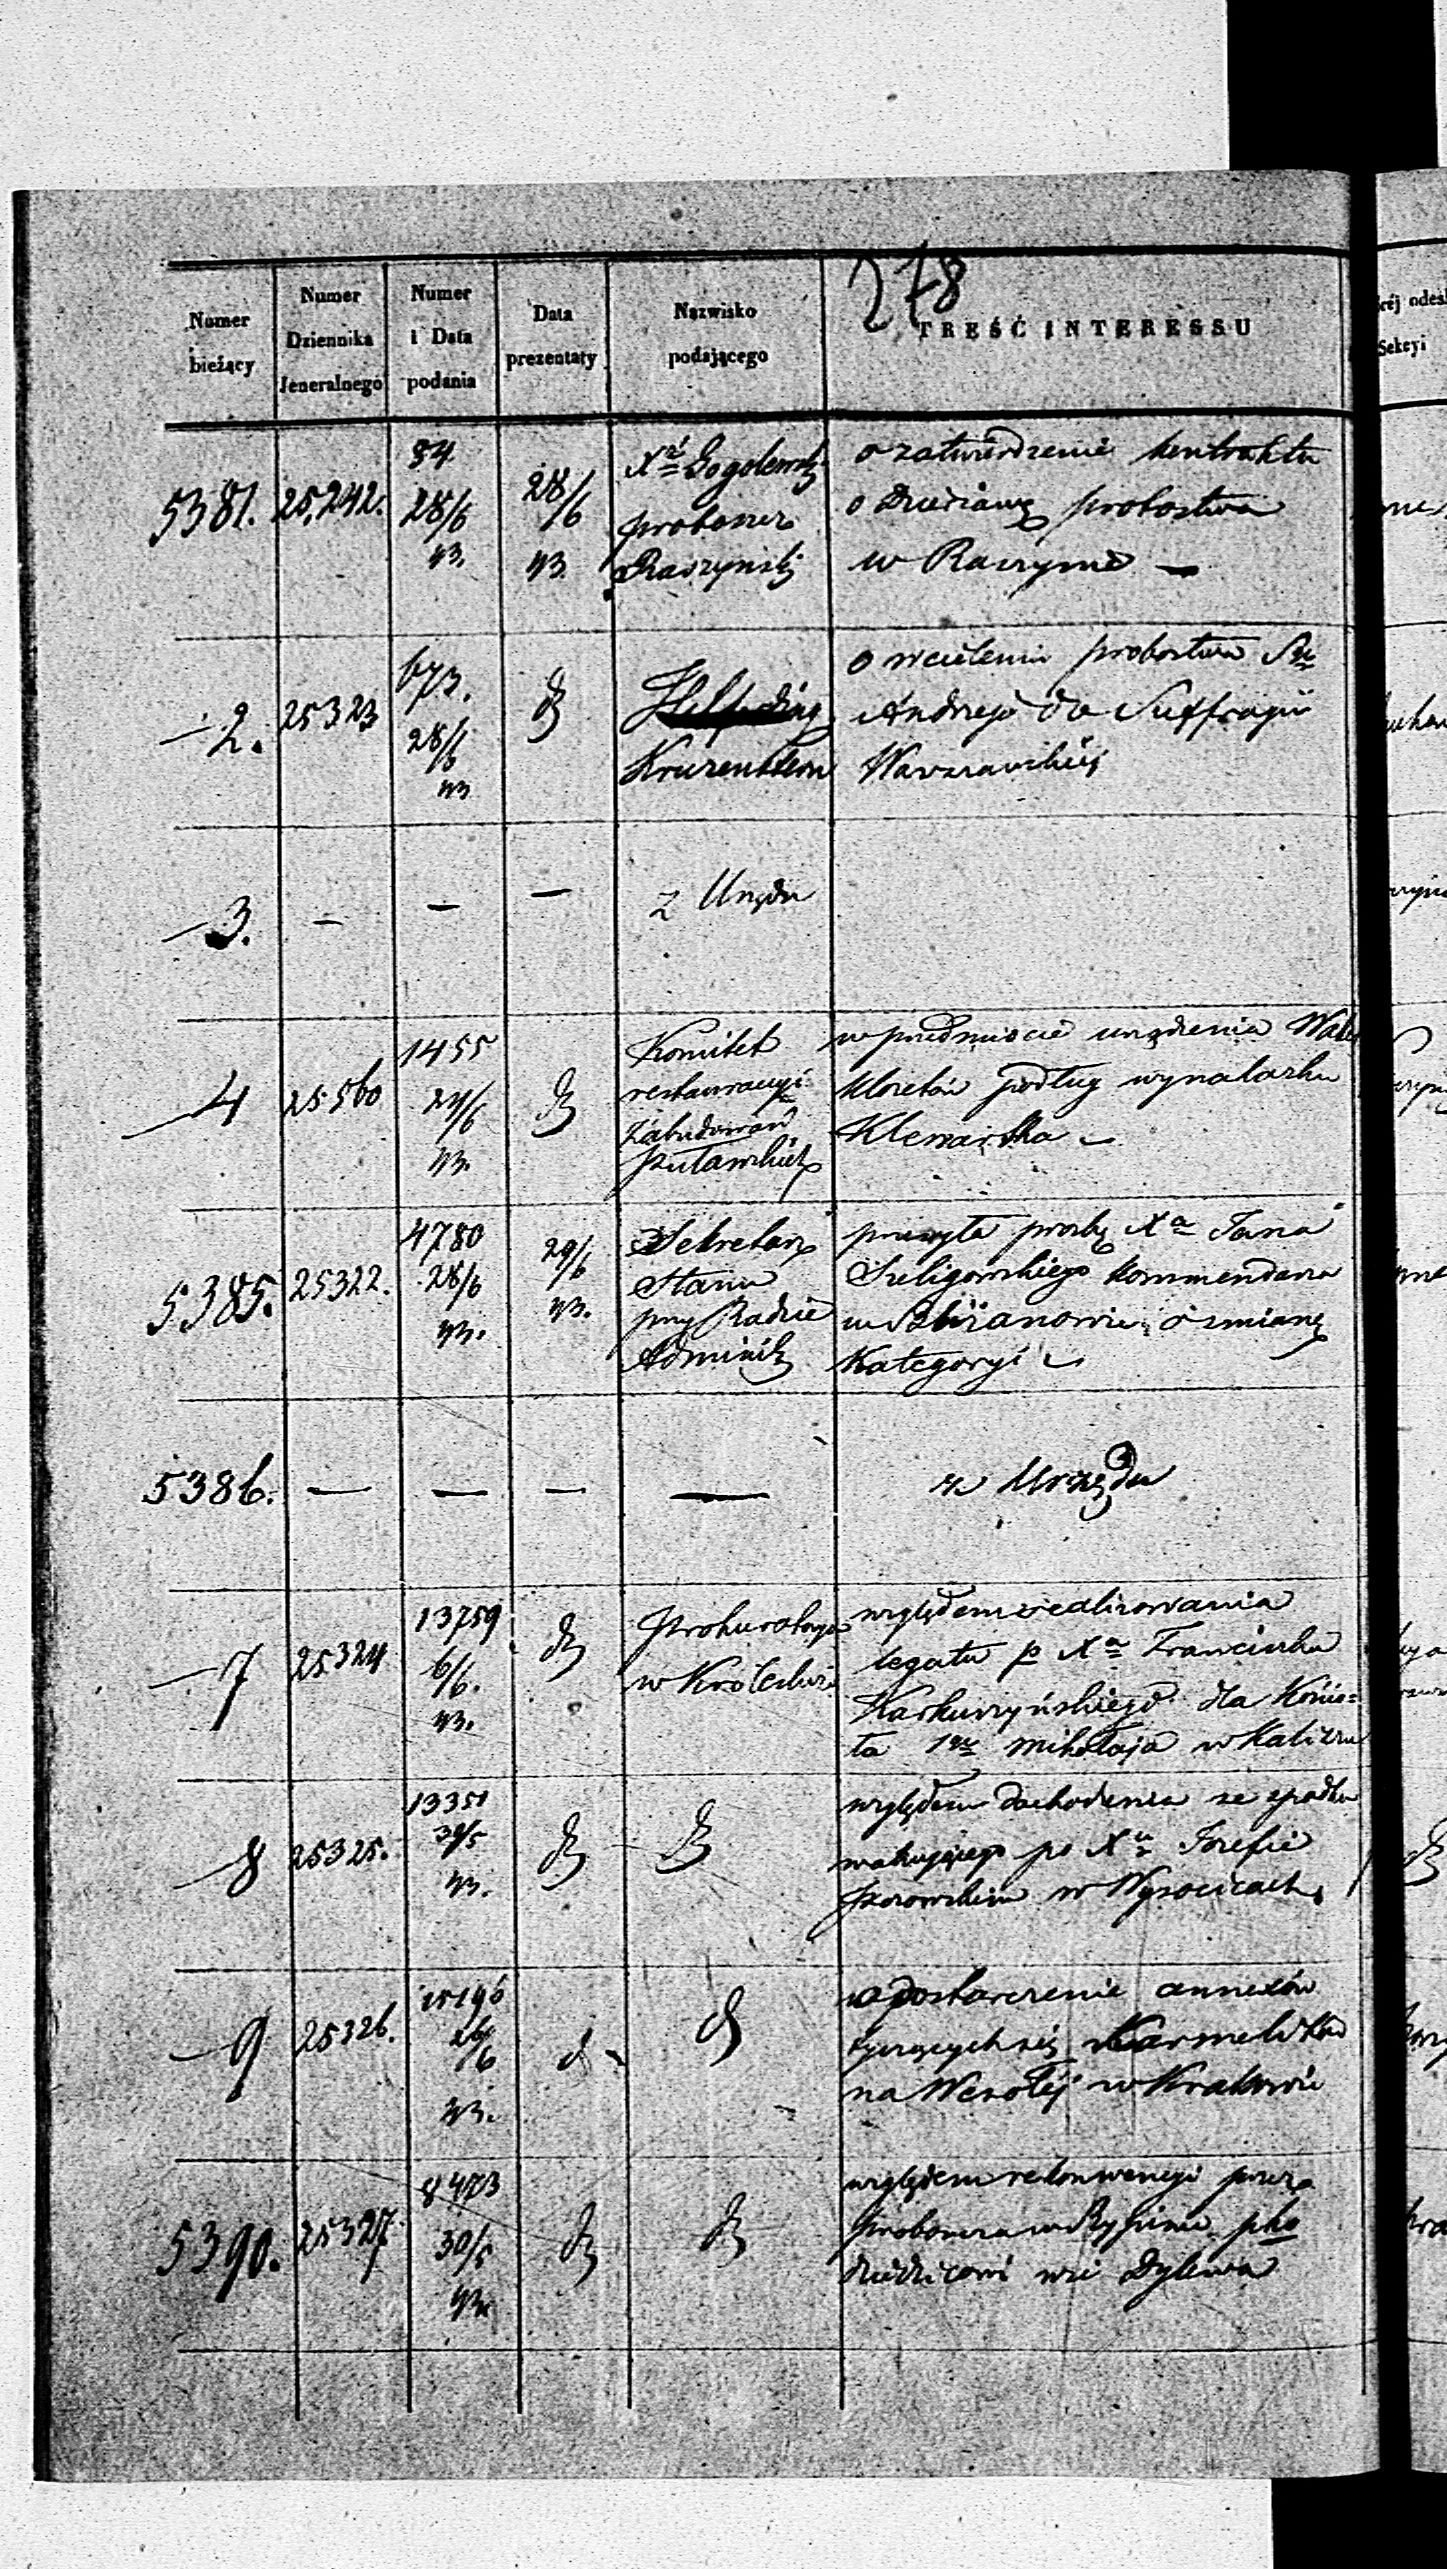 278
Numer bieżący
Numer Dziennika Jeneralnego
Numer i Data podania
Data prezentaty
Nazwisko podającego
TREŚĆ INTERESSU
5381.
25,242.
34
28/6
43.
28/6
43.
Xd
proboszcz
Raszyński
o zatwierdzenie kontraktu
o Dzierżawę probostwa
w Raszynie —
— 2.
25323
673.
28/6
43
d
Kruzenstern
o wcieleniu probostwa Sgo
Andrzeja do Suffragii
Warszawskiej
— 3.
—
—
—
z Urzędu
— 4
25560
1455
24/6
43.
d
Komitet
restauracyi
Zabudowań
Puławskich
w przedmiocie urządzenia
klozetów podług wynalazku
5385.
25322.
4780
28/6
43.
29/6
43.
Sekretarz
Stanu
przy Radzie
Adminis
przesyła prośbę Xa Jana
Szeligowskiego kommendarza
o zmianę
Kategoryi
5386.
—
—
—
—
z Urzędu
— 7
25324
13759
6/6.
43.
d
Prokuratorya
w Królestwie
względem zrealizowania
legatu p Xa Franciszka
dla Kościo=
ła Sgo Mikołaja w Kaliszu
— 8
25325.
13351
43.
d
d
względem dochodzenia ze spadku
wakującego po Xu Józefie
w Wysocicach
— 9
25326.
15196
26/6
43.
d
d
o dostarczenie annexów
tyczących się Karmelitów
na Wesołéj w Krakowie
5390.
25327
8473
30/5
43.
d
d
względem przez
proboszcza pko
dziedzicowi wsi Dylewa